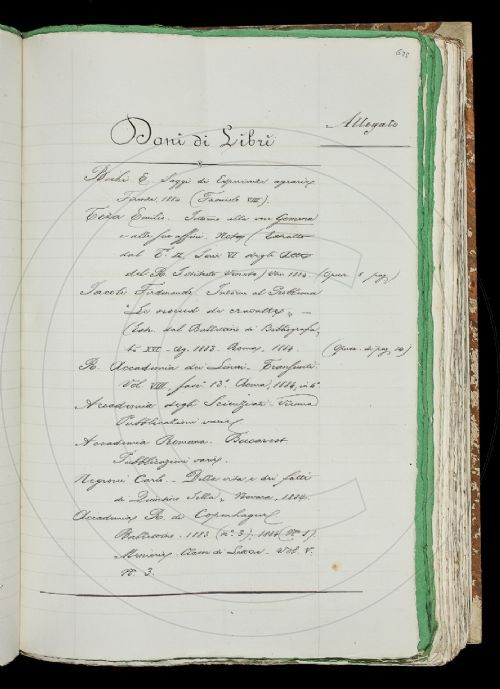 Allegato
Doni di Libri
Bechi E. Saggi di Esperienze agrarie
Firenze, 1884 (Fascicolo VIII).
Teza Emilio. Intorno alla voce Gomera
e alle sue affini. Nota (Estratto
dal T. II, Serie VI degli Atti
del R. Istituto Veneto) Ven. 1884. (Opusc. 8 pag.)
Jacoli Ferdinando. Intorno al Problema
"Le noeud de cravatte" —
(Estr. dal Bullettino di Bibliografia,
to. XVI - Ag. 1883. Roma, 1884. (Opusc. di pag. 10)
R. Accademia dei Lincei. Transunti
Vol. VIII. fasc. 13º. Roma, 1884, in 4º
Accademia degli Scienziati Vienna
Pubblicazioni varie
Accademia Romana. Bucarest
Pubblicazioni varie.
Negroni Carlo. - Della vita e dei fatti
di Quintino Sella, Novara, 1884.
Accademia R. di Copenhague
Bullettino. 1883 (nº. 3); 1884 (Nº 1).
Memorie. Classe di Lettere - Vol. V.
N. 3.